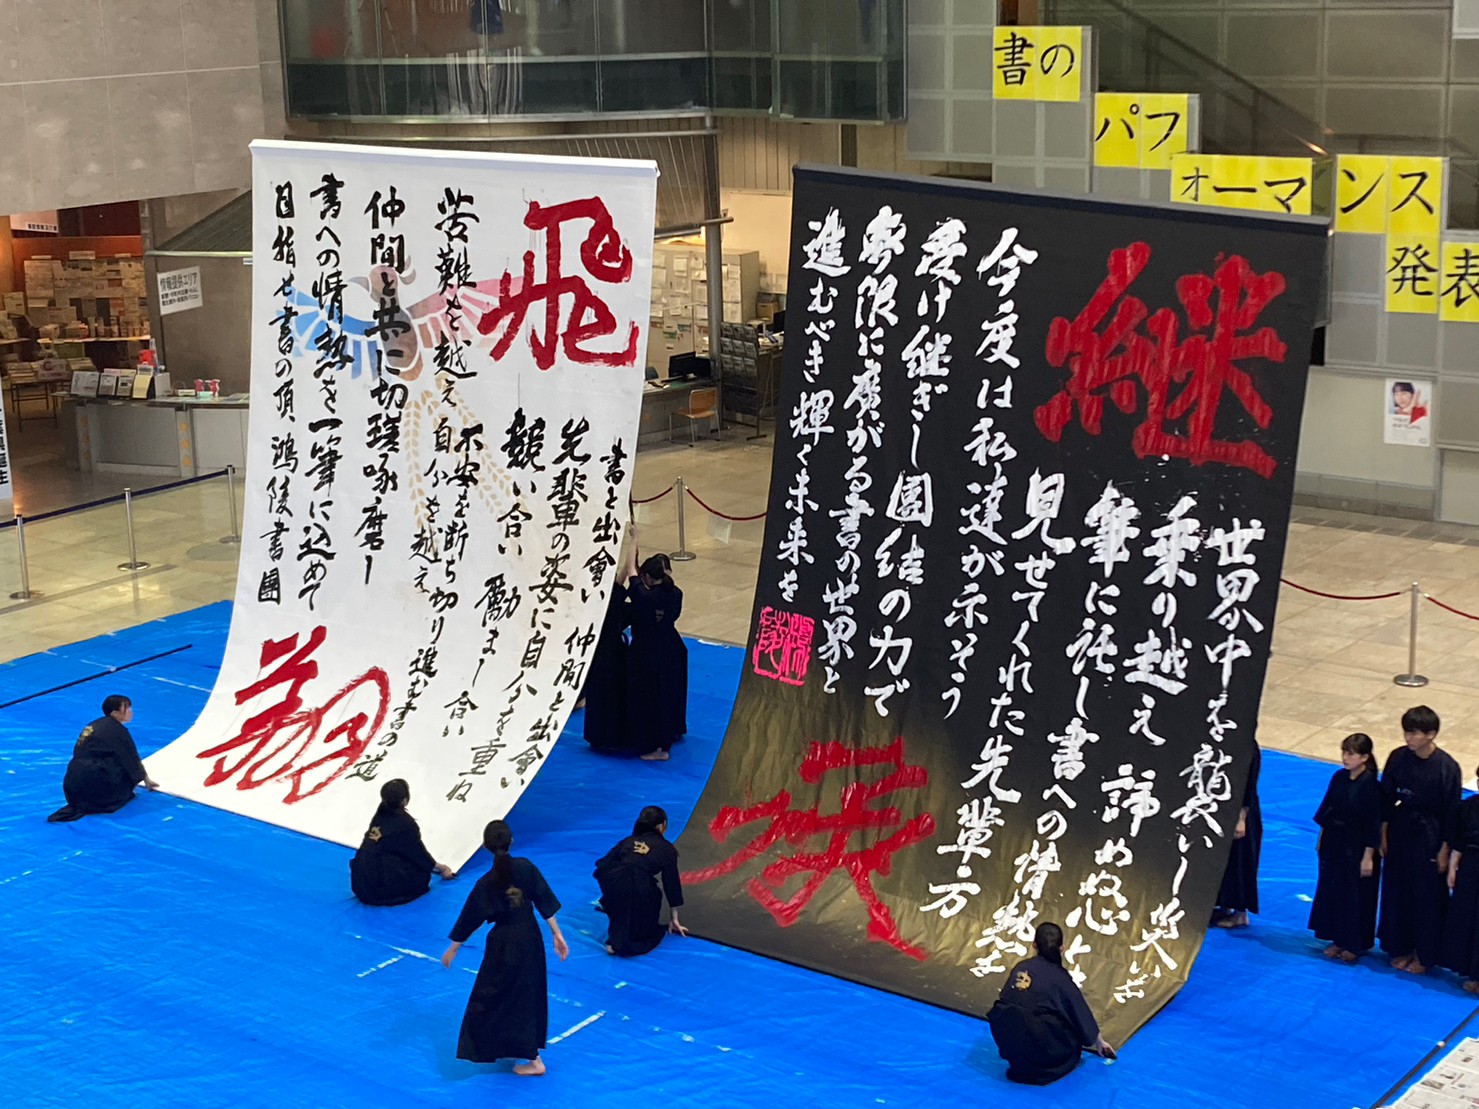 書の
パフ
オーマ
ンス
発表
情報提供エリア
飛
書と出會い 仲間と出會い
先輩の姿に自分を重ね
競い合い 勵まし合い
不安を断ち切り進む書の道
苦難を越え自分を越え
仲間と共に切磋琢磨し
書への情熱を一筆に込めて
目指せ書の頂 鴻陵書團
翔
継
世界中を襲いし災い
乗り越え 諦め
筆に託し書への情熱を
見せてくれた先輩方
今度は私達が示そう
受け継ぎし團結の力で
無限に廣がる書の世界と
進むべき輝く未来を
鴻陵
承